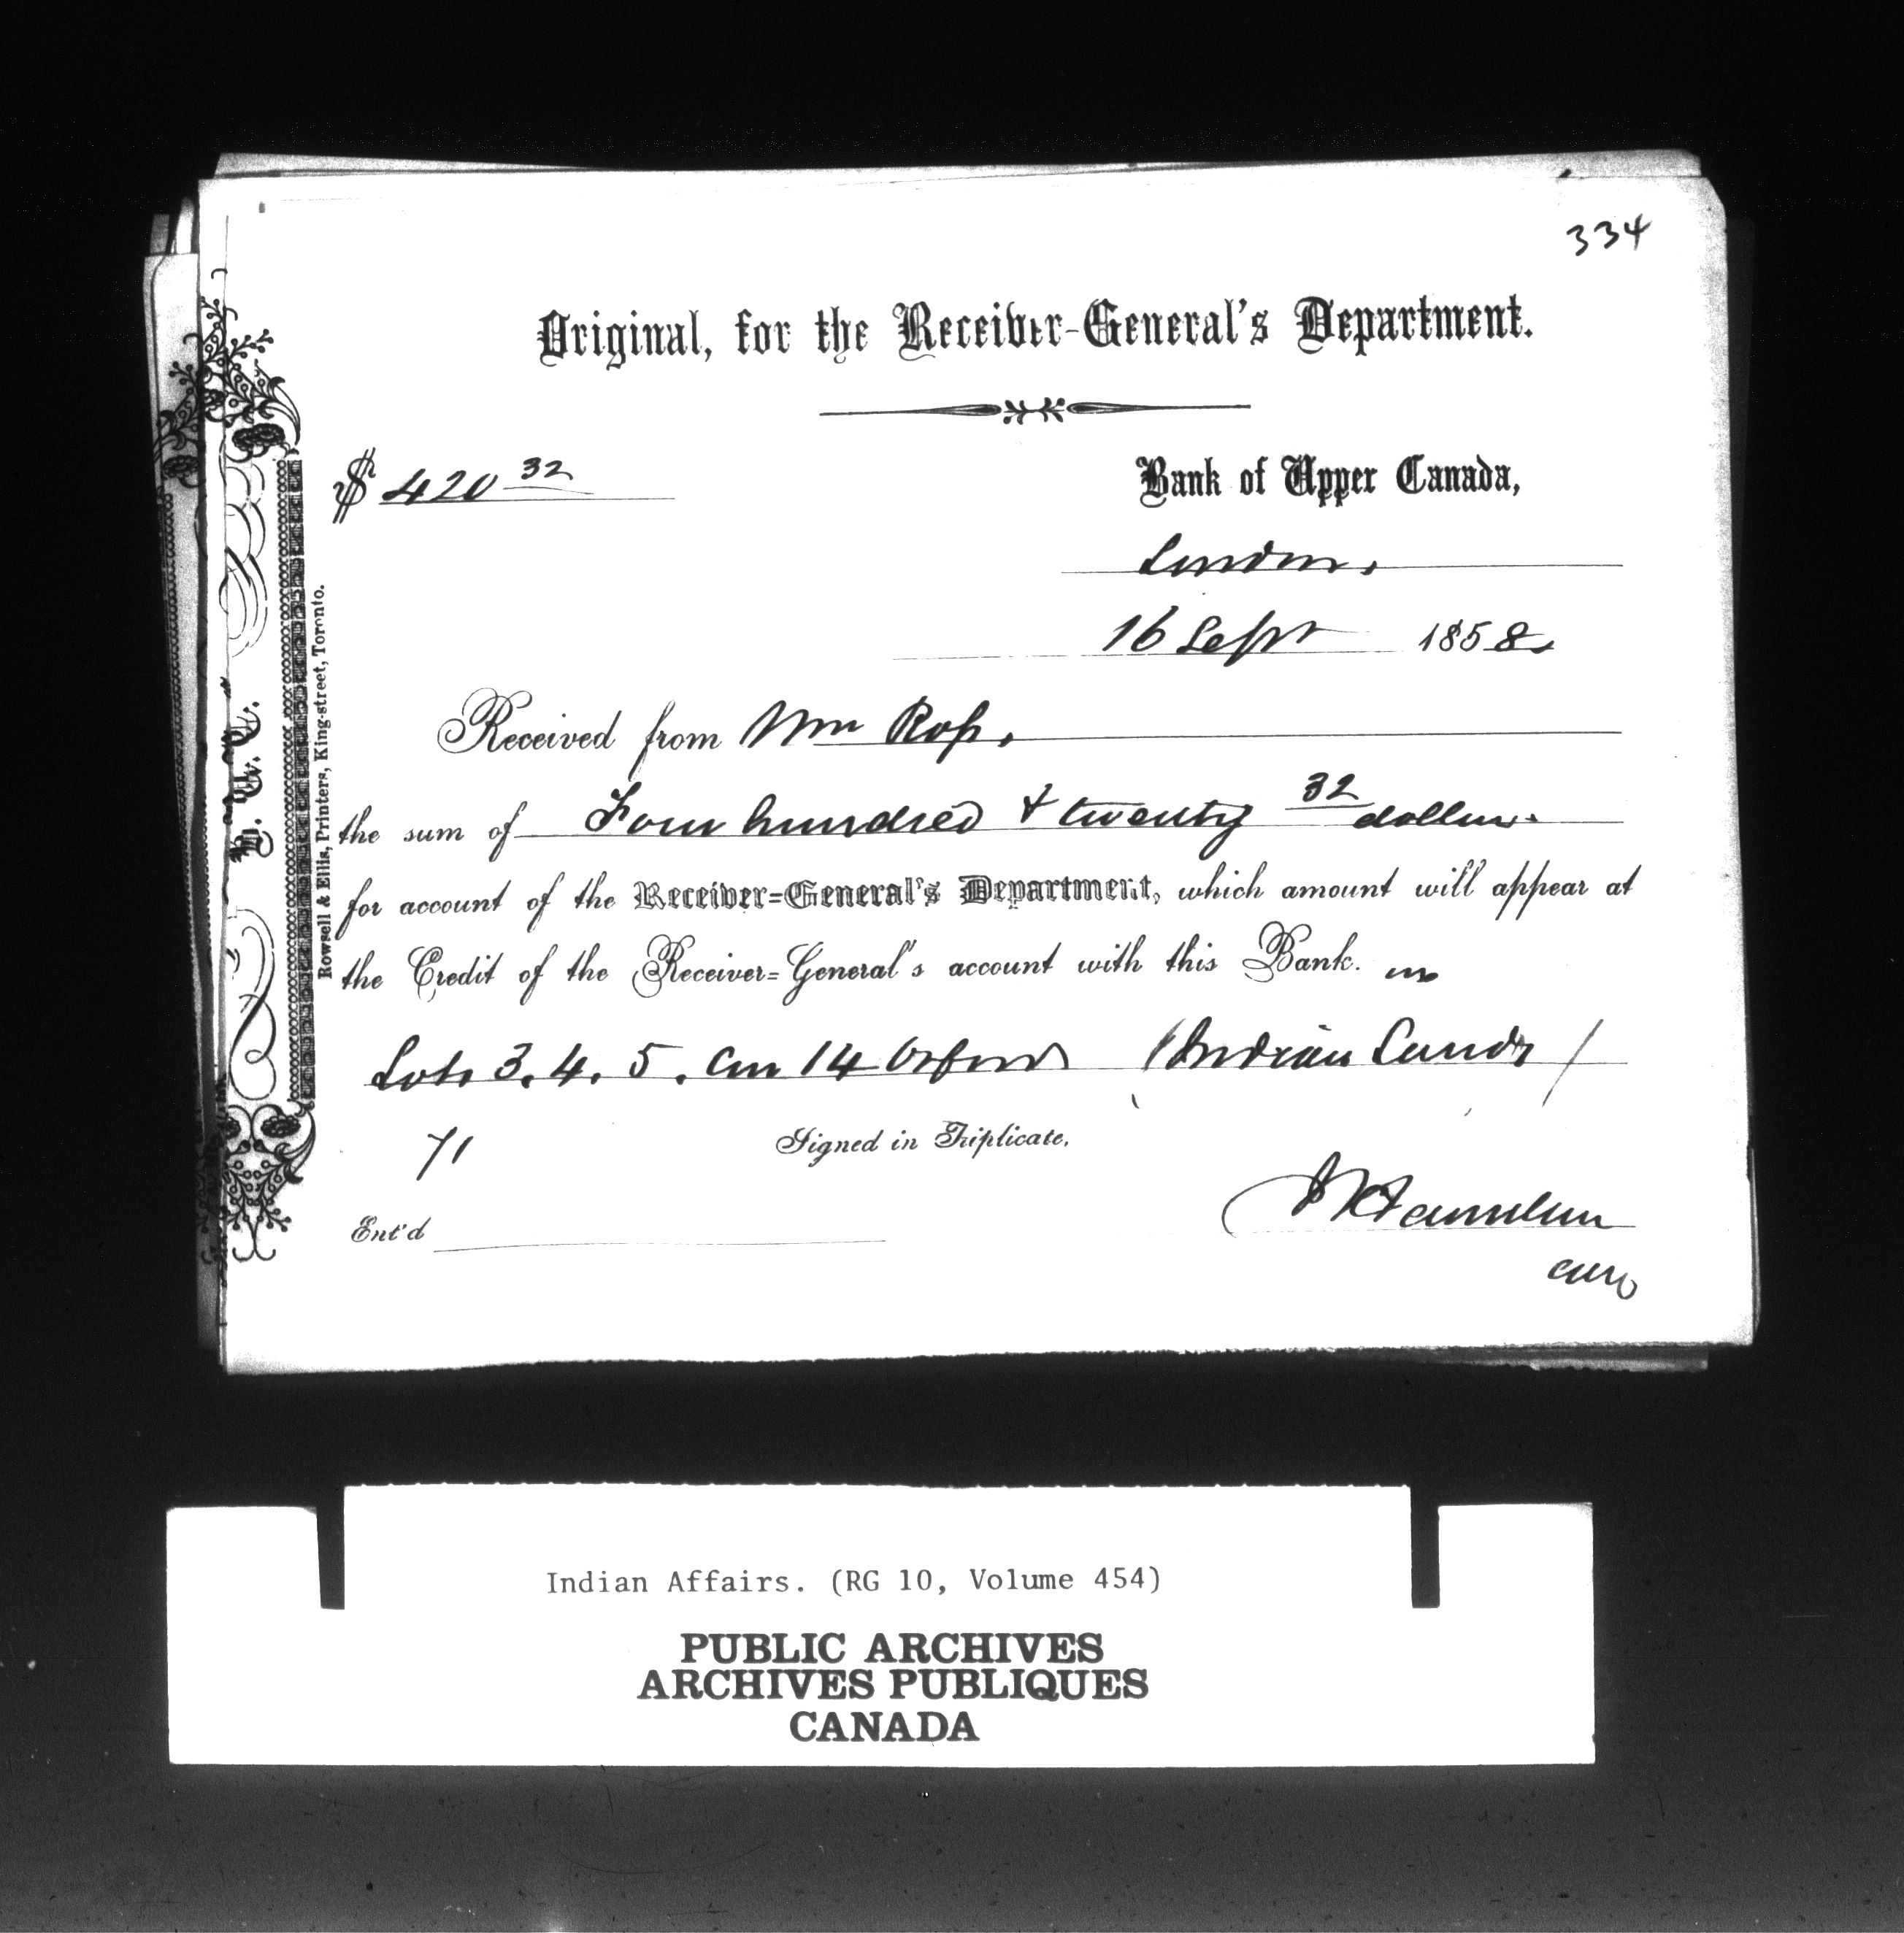 334
Original, for the Receiver-General's Department.
$ 420 32
Bank of Upper Canada,
London.
16 Sept 1858.
Received from Wm Ross.
the sum of Four hundred & twenty 32 dollars.
for account of the Receiver=General's Department, which amount will appear at
the Credit of the Receiver=General's account with this Bank. on
Lots 3. 4. 5. Con 14 Orford (Indian Lands)
71
Signed in Triplicate.
Ent'd
Rowsell & Ellis, Printers, King-street, Toronto.
Indian Affairs. (RG 10, Volume 454)
PUBLIC ARCHIVES
ARCHIVES PUBLIQUES
CANADA